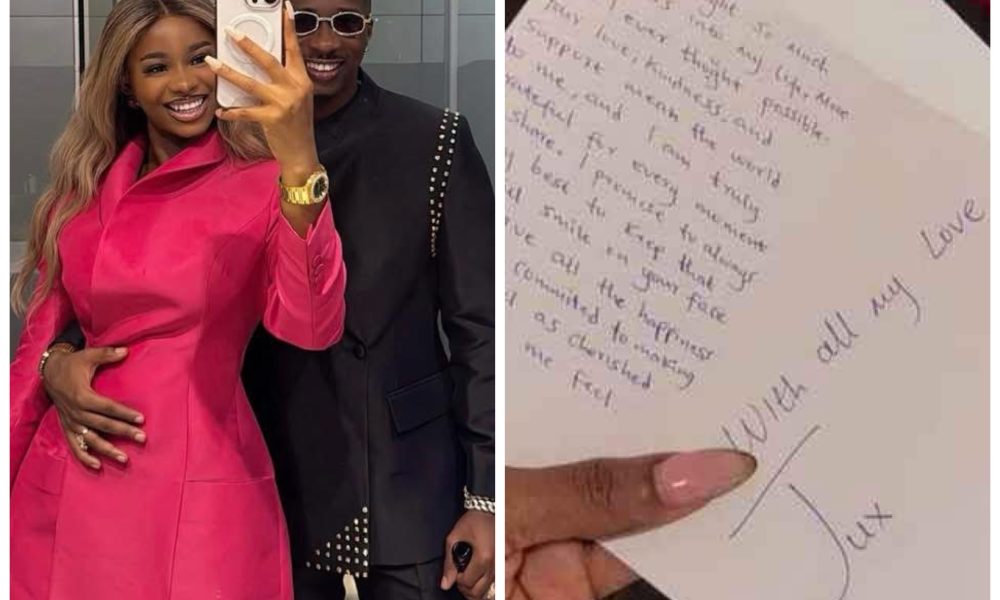 so much
into my life. More
I ever thought possible.
Your love, kindness, and
support mean the world
to me, and I am truly
grateful for every moment
share. I promise to always
best to keep that
smile on your face
all the happiness
committed to making
as cherished
me feel.
With all my Love
Jux